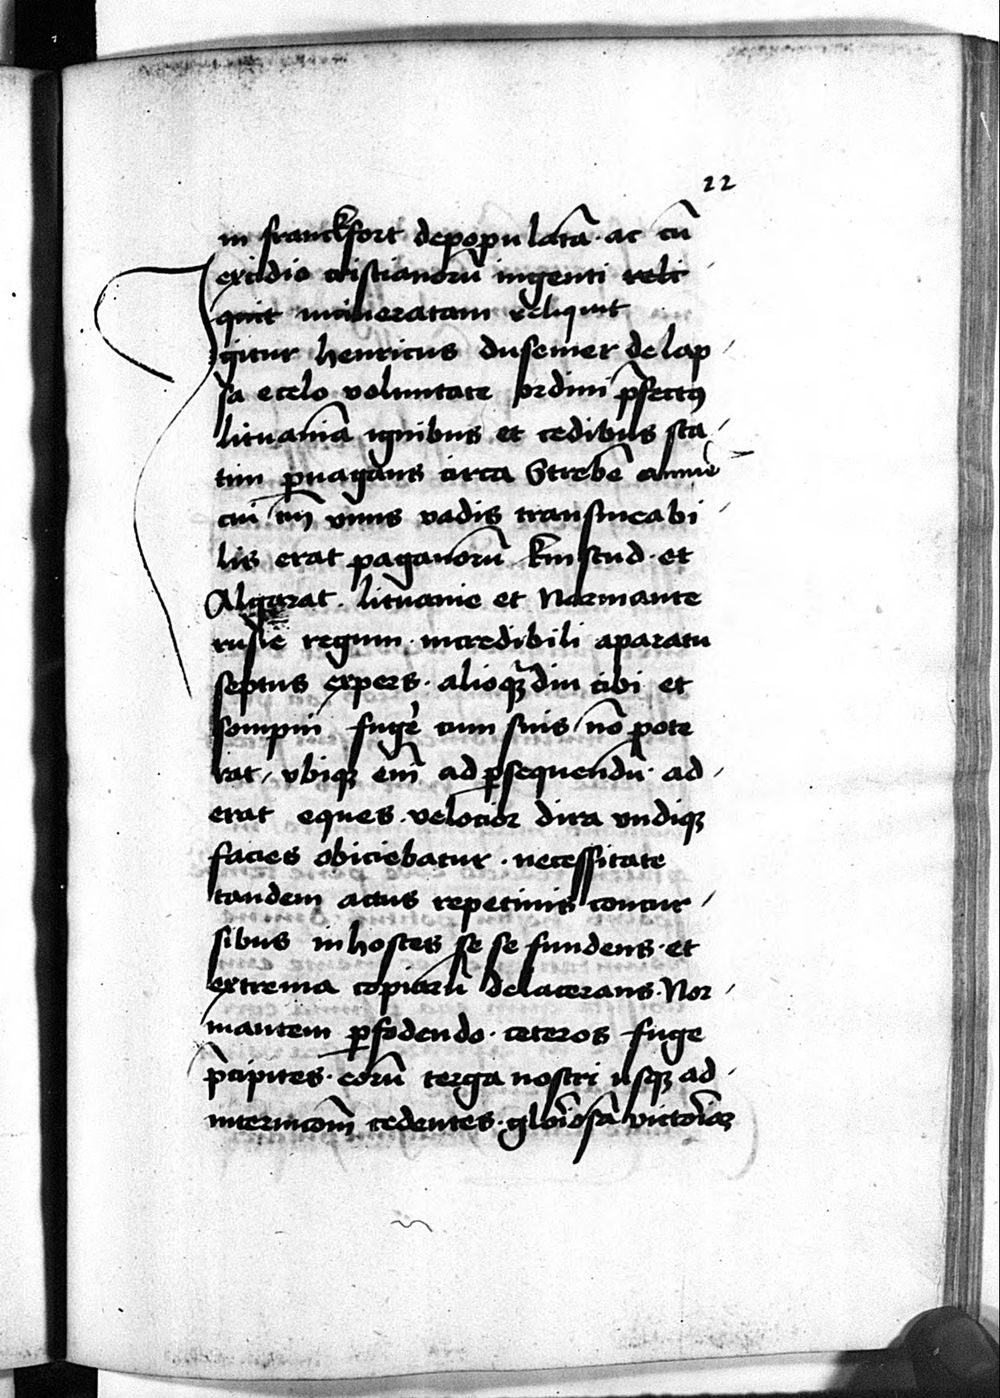 22
in franckfort depopulatā · ac cū
excidio cristianorū ingenti reli
quit incineratam reliquit
Igitur henricus dusemer de lap
sa e celo voluntate ordini p̄fectus
lituaniā ignibus et cedibus sta
tim p̱uagans circa Strebē amnē
cui tm̄ vnus vadis transmeabi
lis erat paganorū kinstud · et
Algarat · lituanie et Normante
rusie regum · incredibili aparatu
septus expers · alioqꝫ diu cibi et
sompni fug̃e cum suis nō pote
rat / vbiqꝫ em̄ ad p̱sequendū · ad
erat eques velocior dira vndiqꝫ
facies obiciebatur · necessitate
tandem actus repetinis concur
sibus in hostes se se fundens · et
extrema copiarū delacerans · Nor
mantem p̱fodendo · ceteros fuge
p̄cipites · eorū terga nostri usqꝫ ad
internicōm̄ cedentes · gloīosā victoīaꝫ